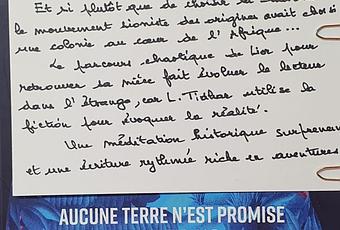 Et si plutôt que de choisir la
le mouvement sioniste des origines avait choisi
une colonie au cœur de l'Afrique...
Le parcours chaotique de Lior pour
retrouver sa nièce fait évoluer le lecteur
dans l'étrange, car L. Tidhar utilise la
fiction pour évoquer la réalité.
Une méditation historique surprenan
et une écriture rythmée riche en aventures
AUCUNE TERRE N'EST PROMISE